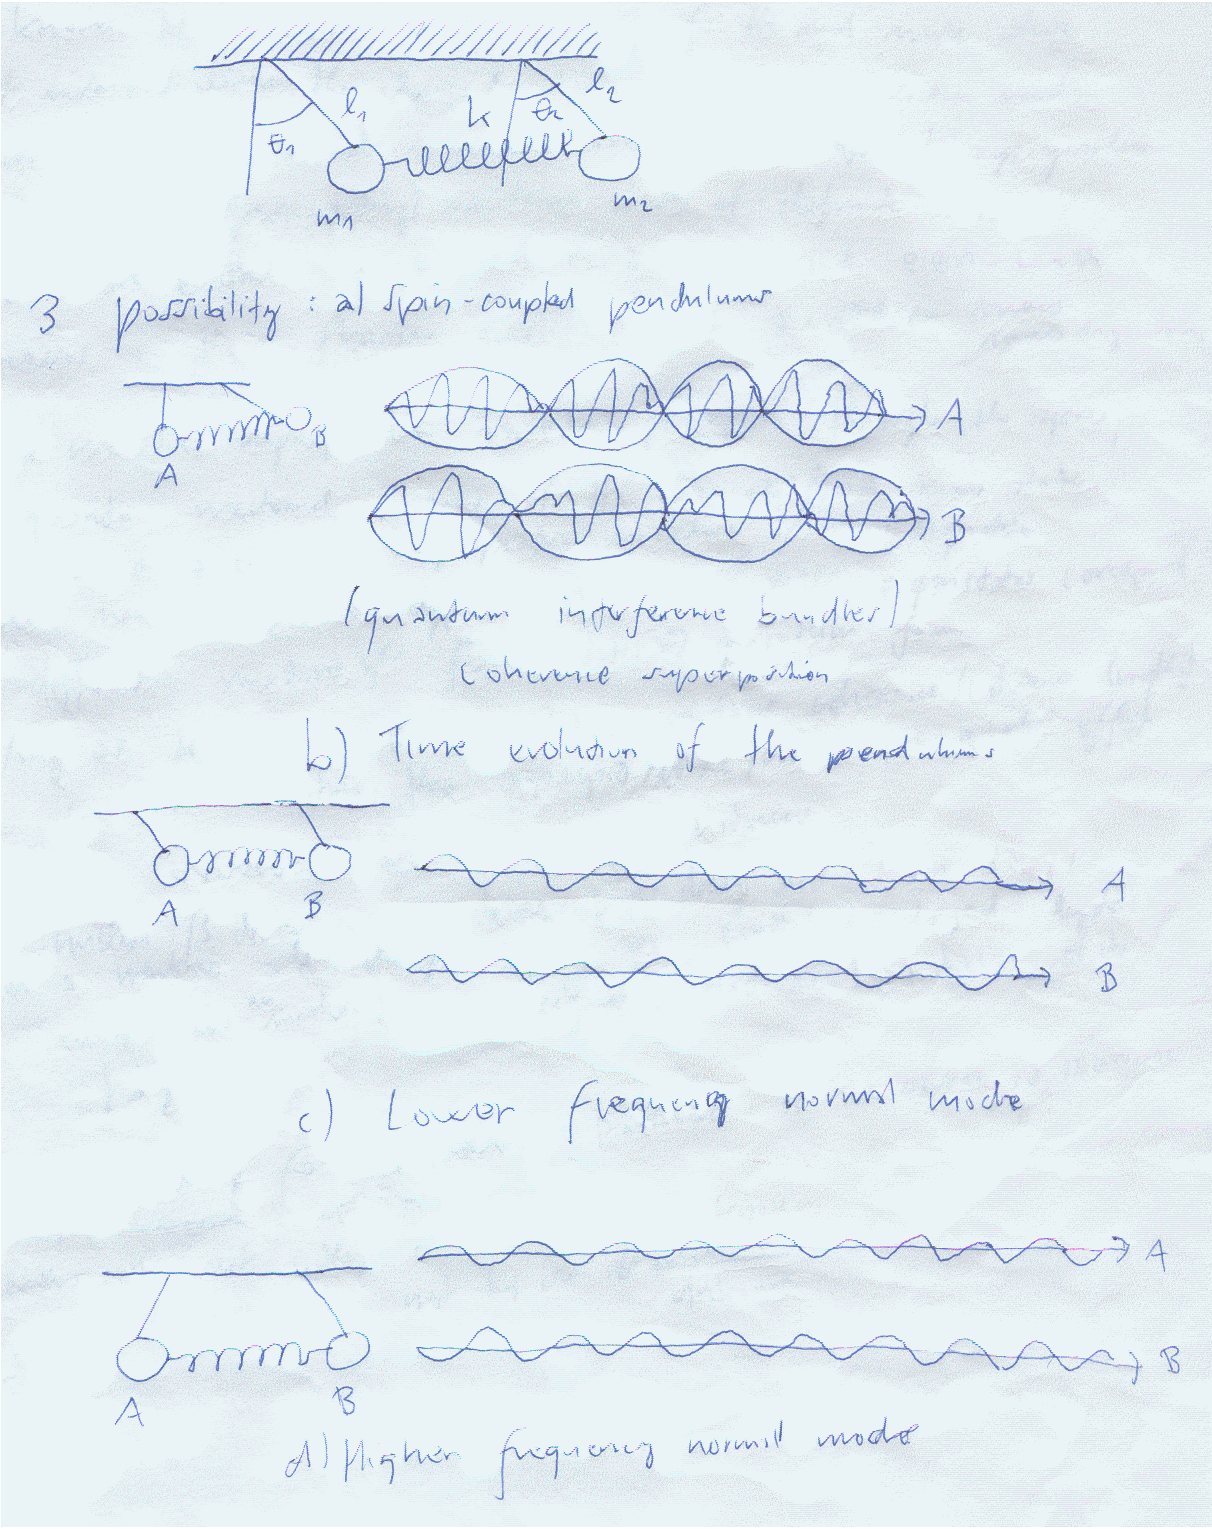 l₁
l₂
k
θ₁
θ₂
m₁
m₂
3 possibility : a) spin-coupled pendulums
A
B
A
B
(quantum interference bundles)
Coherence superposition
b) Time evolution of the pendulums
A
B
A
B
c) Lower frequency normal mode
A
B
A
B
d) Higher frequency normal mode